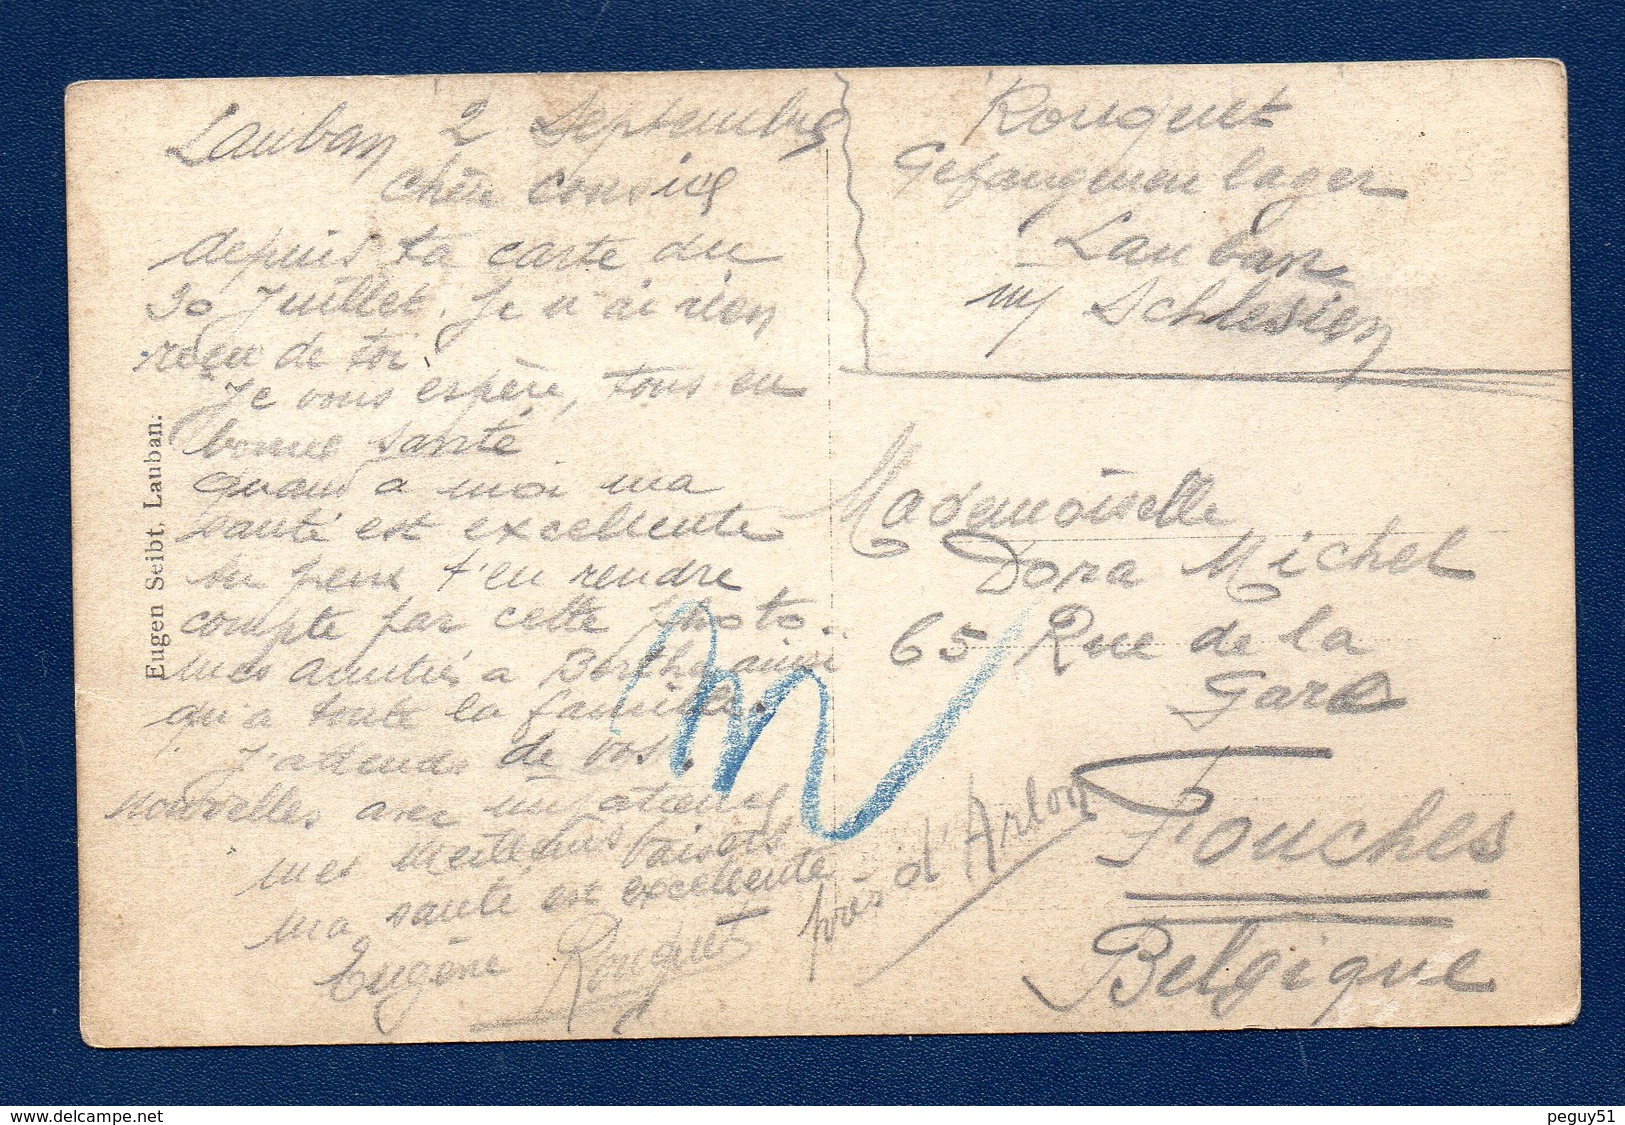 Lauban 2 Septembre
Chère cousine
depuis ta carte du
30 Juillet. Je n'ai rien
reçu de toi
Je vous espère, tous en
bonne santé
Quand a moi ma
santé est excellente
tu peux t'en rendre
compte par cette photo.
mes amitiés a Berthe ainsi
qu'a toute la famille.
J'attends de vos.
nouvelles avec impatience
mes meilleurs baisers
ma santé est excellente
Eugène Rouquet
Eugen Seibt, Lauban.
Rouquet
Gefangenen lager
Lauban
Schlesien
Mademoiselle
Dora Michel
65 Rue de la
Gare
Fouches
près d'Arlon
Belgique
delcampe.net
peguy51